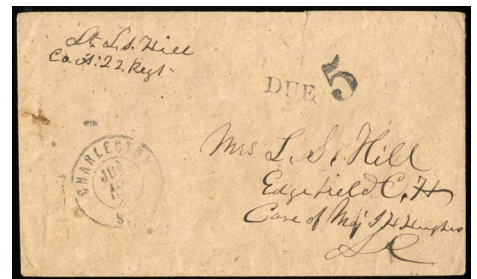 Lt L.S. Hill
Co. A. 22, Regt
DUE 5
CHARLESTON
S.
Mrs L. S. Hill
Edgefield C, H
Care of Maj J H Hughes
S C